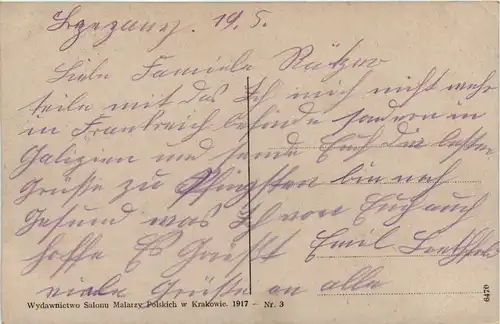 19. 5.
Liebe Familie
teile mit das Ich mich nicht mehr
in Frankreich befinde sondern in
Galizien und sende Euch die besten
Grüsse zu Pfingsten bin noch
Gesund was Ich von Euch auch
hoffe Es Grüsst Emil
viele Grüsse an alle
Wydawnictwo Salonu Malarzy Polskich w Krakowie. 1917 — Nr. 3
6470